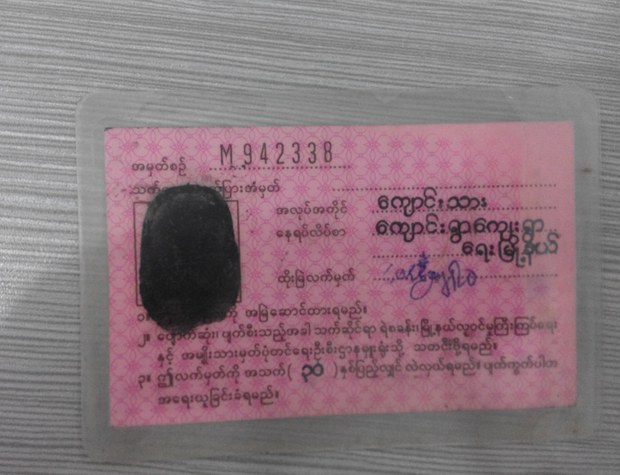 အမှတ်စဉ် M 942338
အလုပ်အကိုင် ကျောင်းသား
နေရပ်လိပ်စာ ကျောင်းရွာကျေးရွာ
ရေးမြို့နယ်
ထိုးမြဲလက်မှတ်
ကို အမြဲဆောင်ထားရမည်။
၂။ ပျောက်ဆုံး၊ ပျက်စီးသည့်အခါ သက်ဆိုင်ရာ ရဲစခန်း၊ မြို့နယ်လူဝင်မှုကြီးကြပ်ရေး
နှင့် အမျိုးသားမှတ်ပုံတင်ရေးဦးစီးဌာနမှူးရုံးသို့ သတင်းပို့ရမည်။
၃။ ဤလက်မှတ်ကို အသက် ( ၃၀ ) နှစ်ပြည့်လျှင် လဲလှယ်ရမည်။ ပျက်ကွက်ပါက
အရေးယူခြင်းခံရမည်။